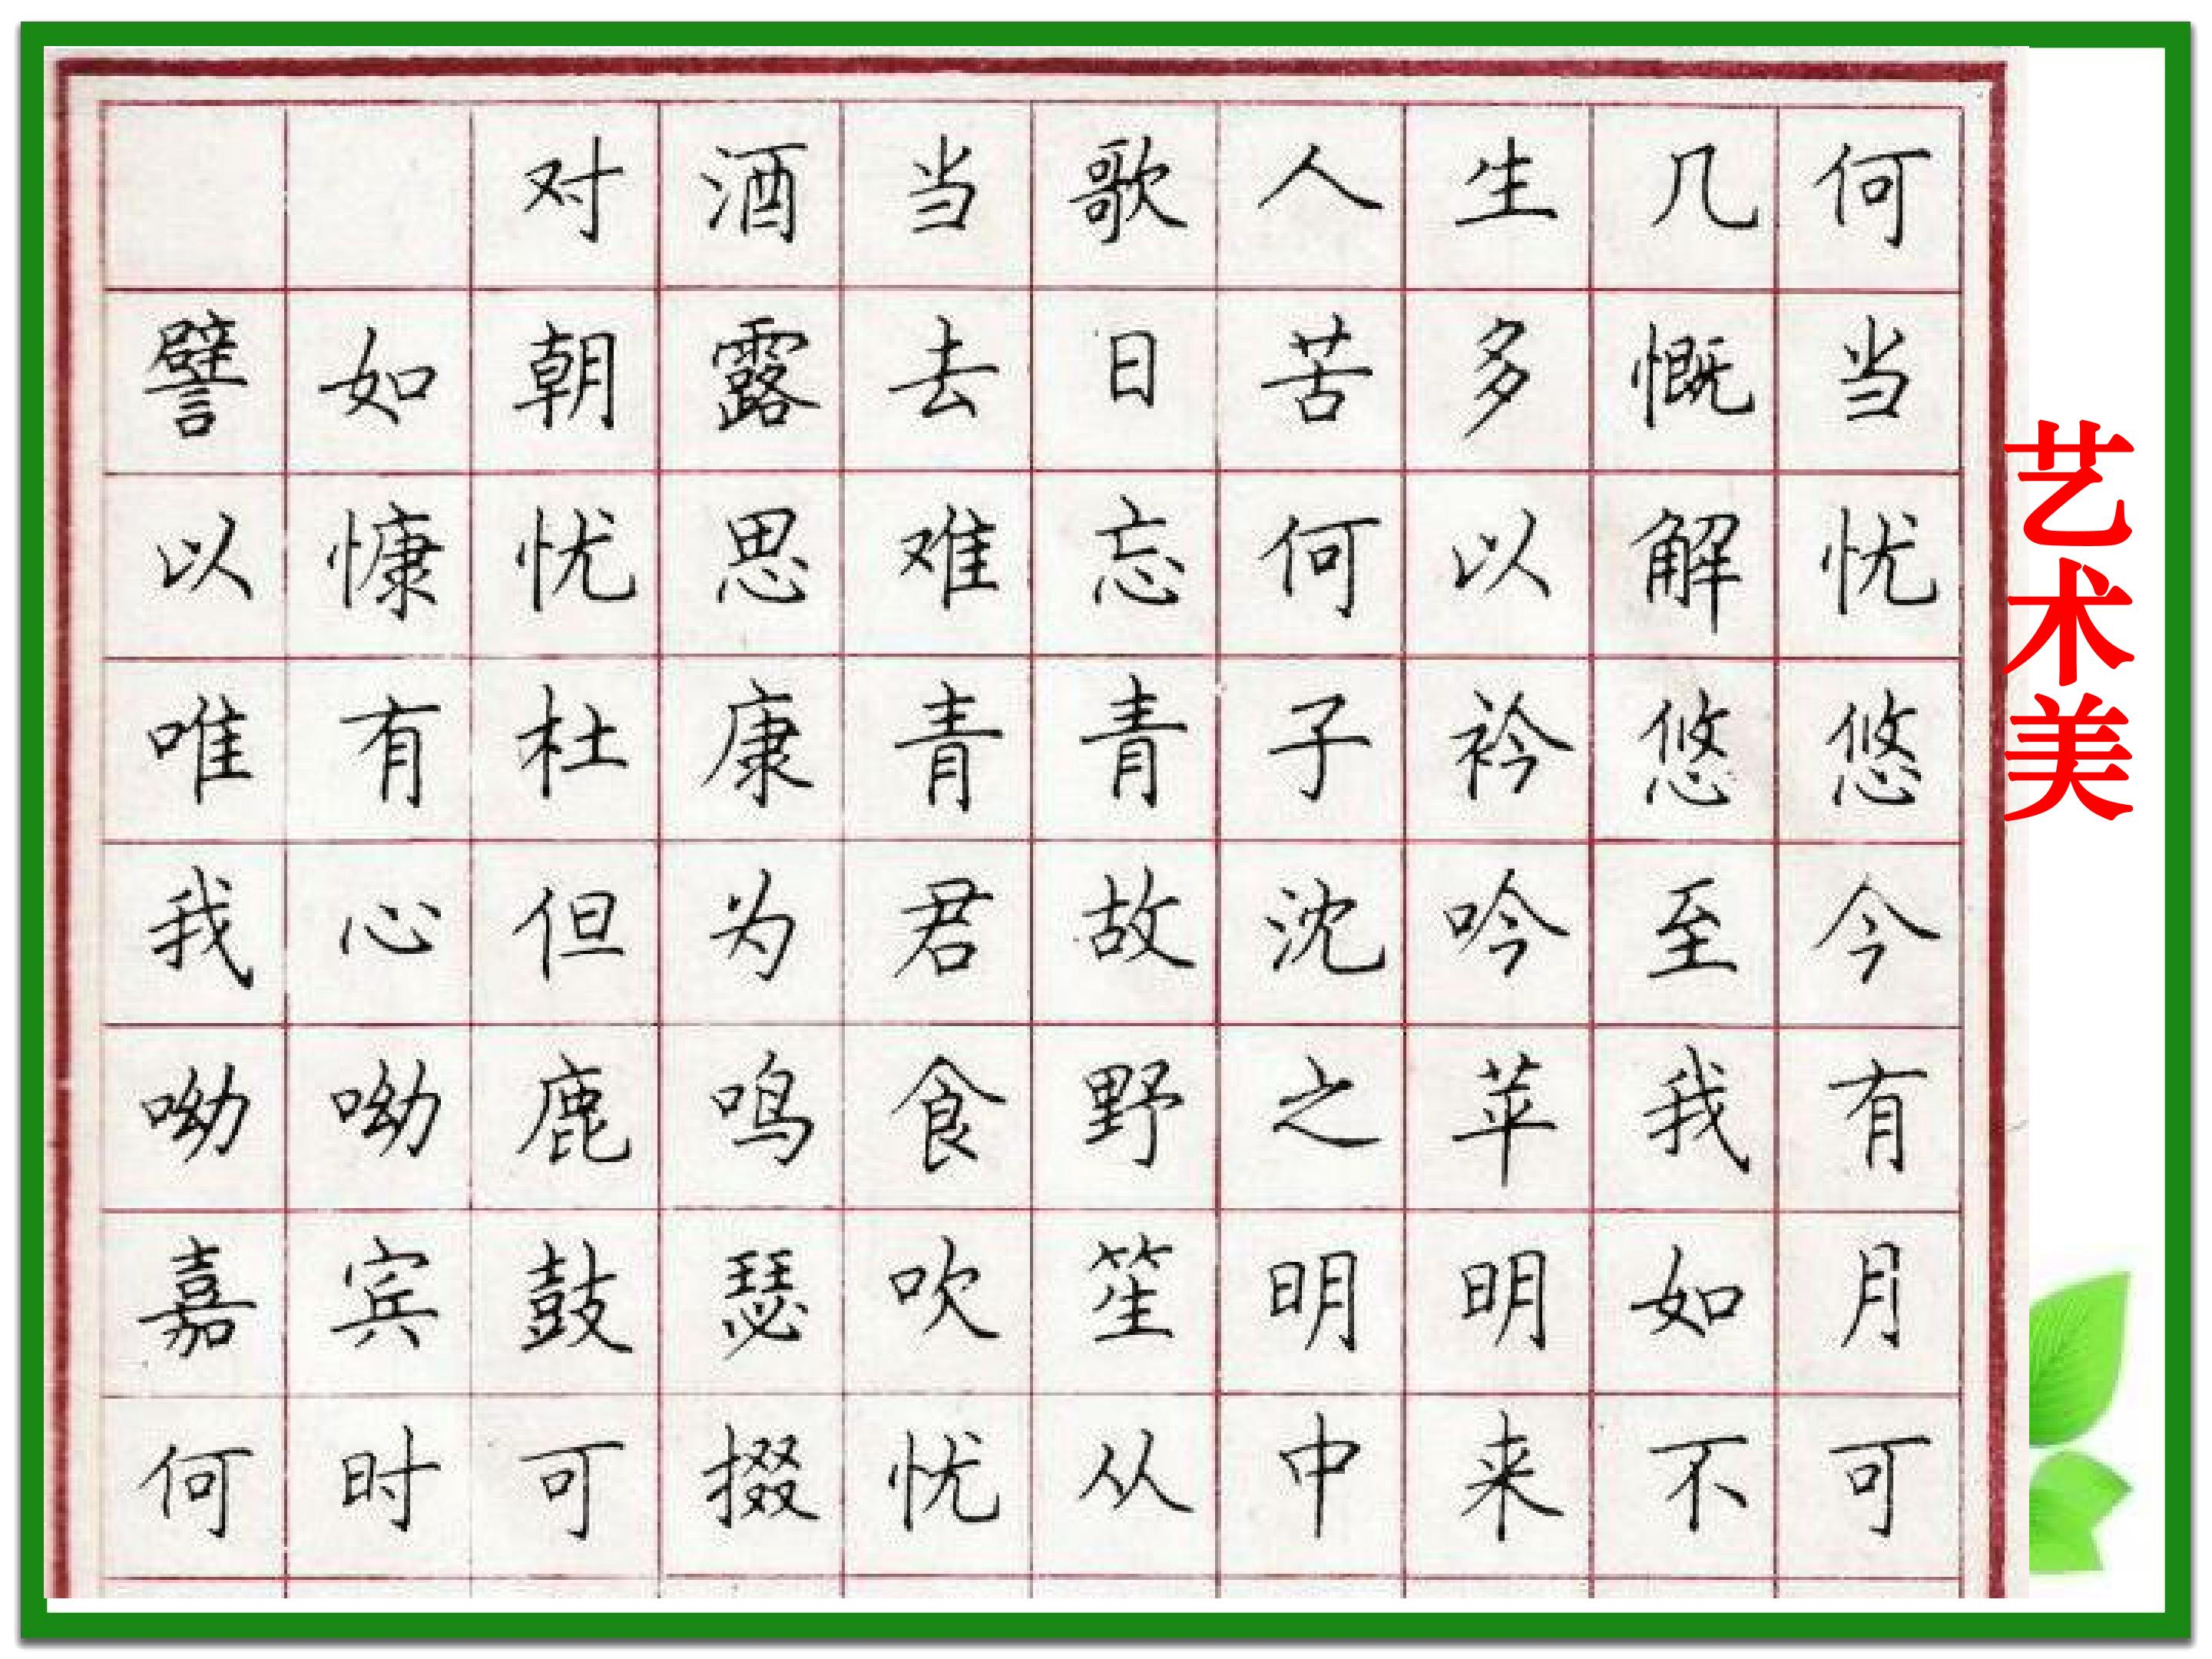 对酒当歌人生几何
譬如朝露去日苦多慨当
以慷忧思难忘何以解忧
唯有杜康青青子衿悠悠
我心但为君故沈吟至今
呦呦鹿鸣食野之苹我有
嘉宾鼓瑟吹笙明明如月
何时可掇忧从中来不可
艺术美